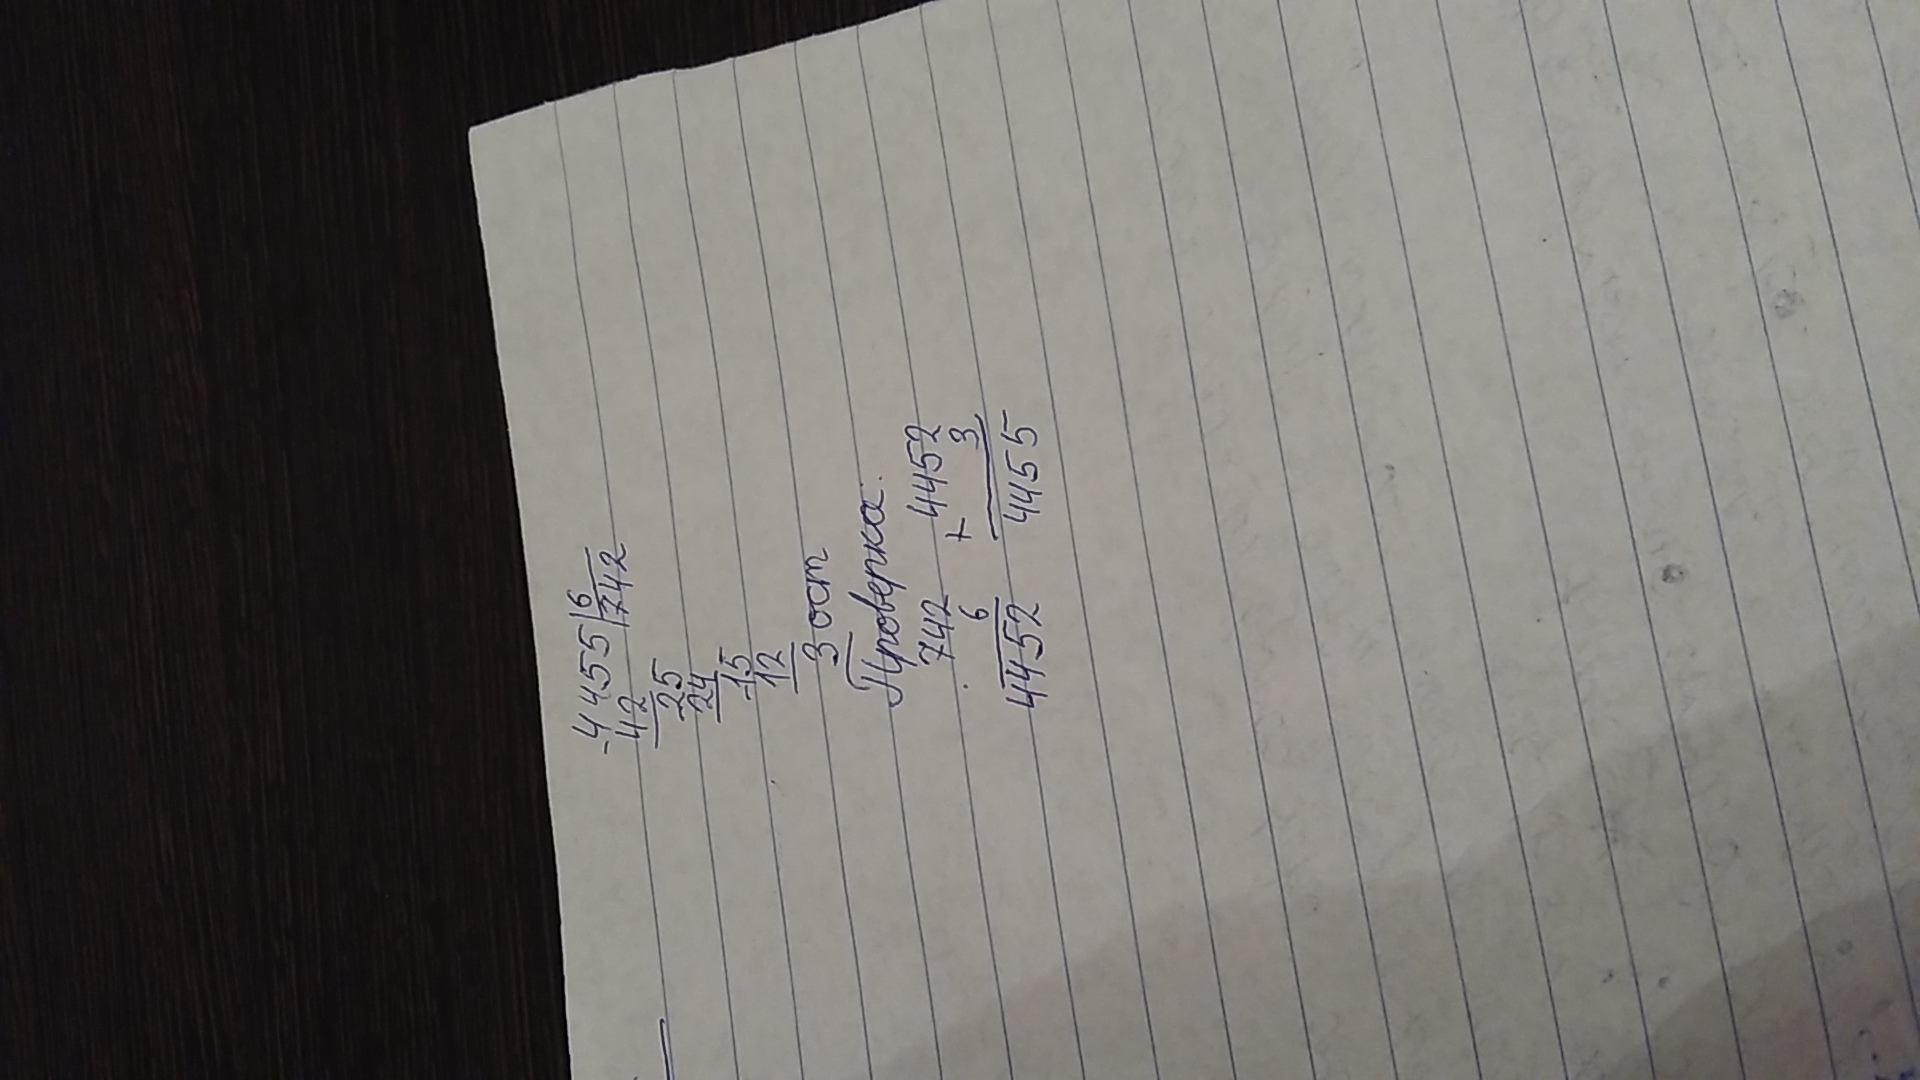 -4455|6
42 742
-25
24
-15
12
3 ост
Проверка:
742 + 4452
6 3
4452 4455